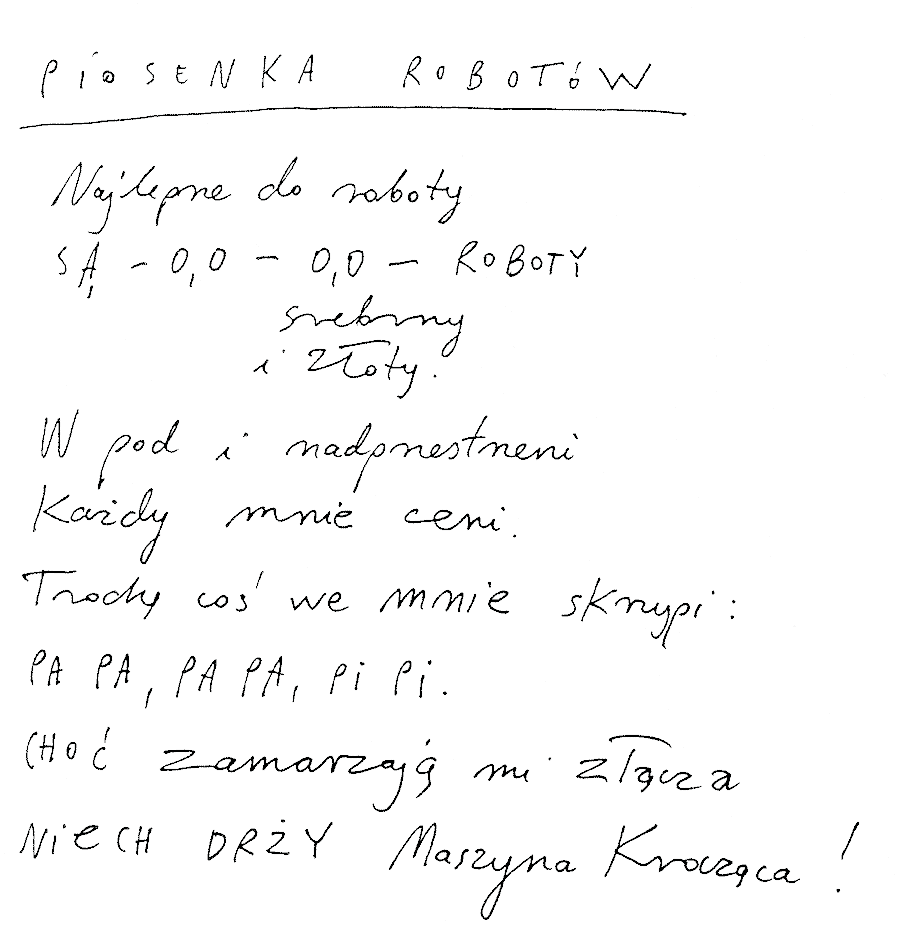 PIOSENKA ROBOTÓW
Najlepsze do roboty
SĄ - 0,0 - 0,0 - ROBOTY
srebrny
i złoty.
W pod i nadprzestrzeni
Każdy mnie ceni.
Trochę coś we mnie skrzypi:
PA PA, PA PA, Pi Pi.
CHOĆ zamarzają mi złącza
NIECH DRŻY Maszyna Krocząca!